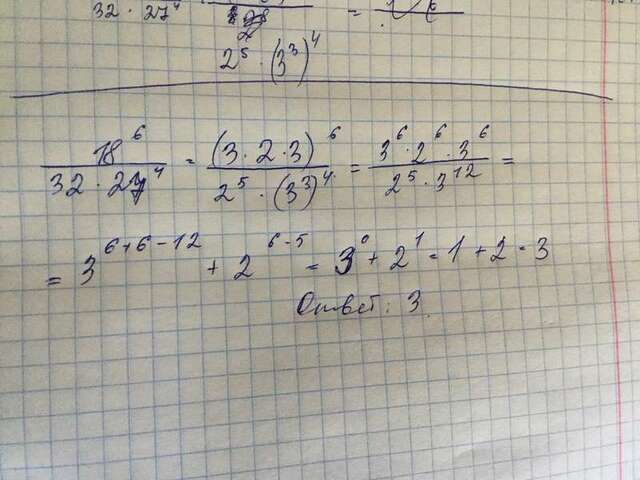 32 · 27⁴ =
2⁵ · (3³)⁴
18⁶ / 32 · 27⁴ = (3 · 2 · 3)⁶ / 2⁵ · (3³)⁴ = 3⁶ · 2⁶ · 3⁶ / 2⁵ · 3¹² =
= 3⁶⁺⁶⁻¹² + 2⁶⁻⁵ = 3⁰ + 2¹ = 1 + 2 = 3
Ответ: 3.